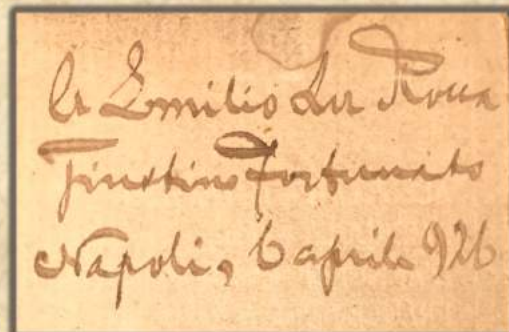 a Emilio La Rocca
Giustino Fortunato
Napoli, 6 aprile 926